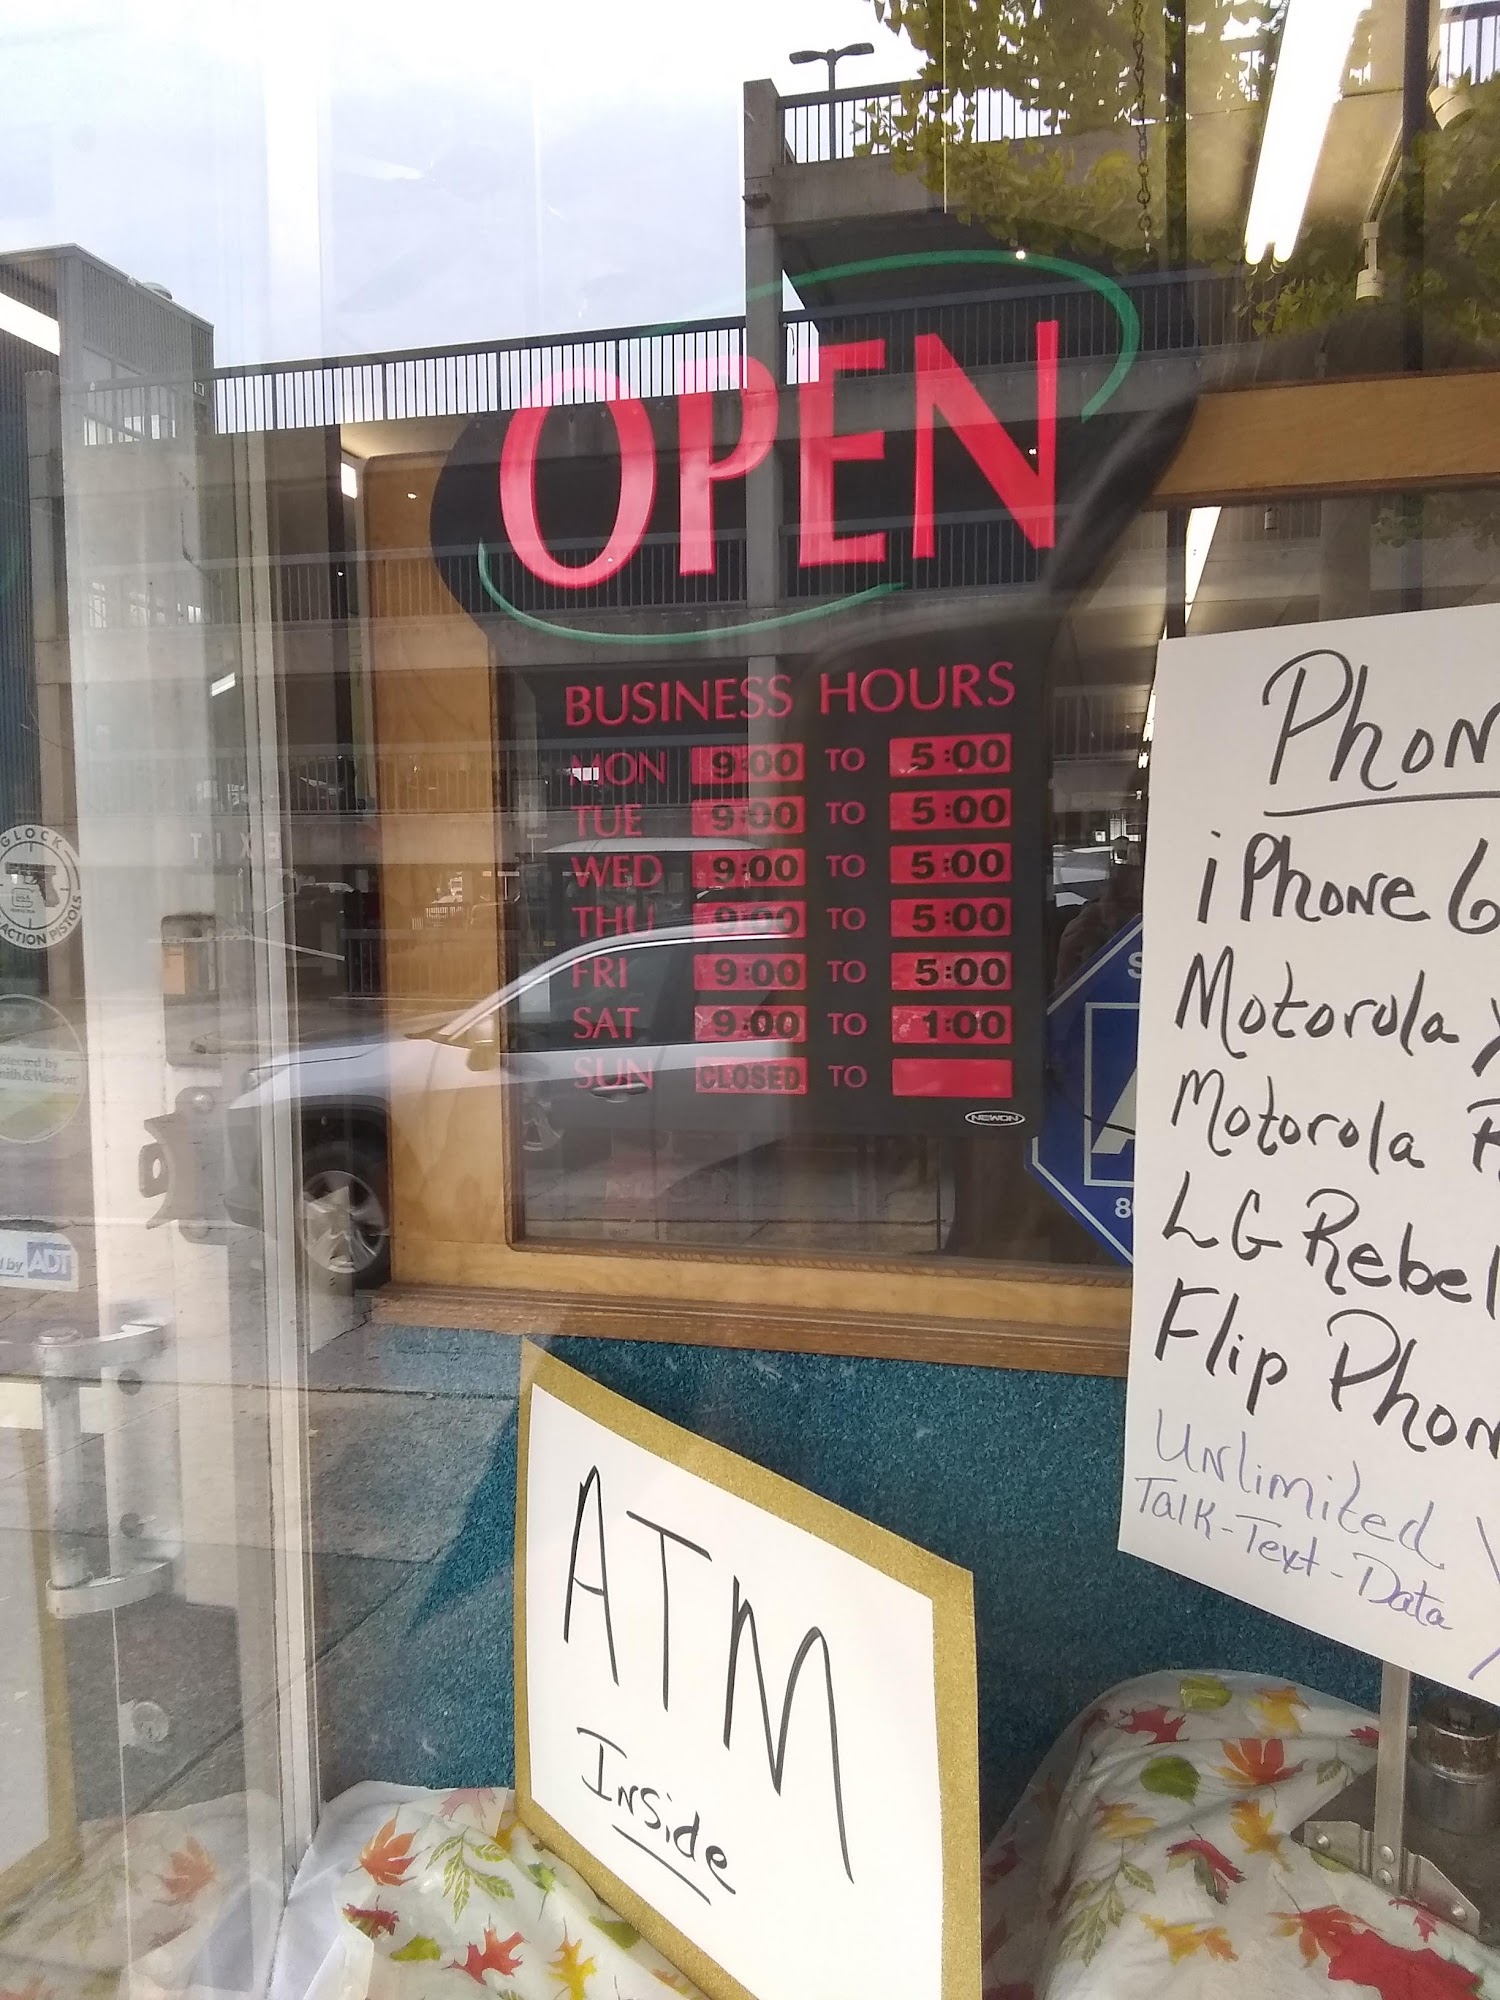 OPEN
BUSINESS HOURS
MON 9:00 TO 5:00
TUE 9:00 TO 5:00
WED 9:00 TO 5:00
THU 9:00 TO 5:00
FRI 9:00 TO 5:00
SAT 9:00 TO 1:00
SUN CLOSED TO
NEWON
EXIT
GLOCK
ACTION PISTOLS
by ADT
Phon
iPhone 6
Motorola
Motorola
LG Rebel
Flip Phon
Unlimited
Talk-Text-Data
ATM
Inside